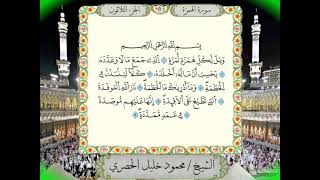 سورة الهمزة
الجزء الثلاثون
بِسْمِ اللَّهِ الرَّحْمَٰنِ الرَّحِيمِ
وَيْلٌ لِّكُلِّ هُمَزَةٍ لُّمَزَةٍ ۝ الَّذِي جَمَعَ مَالًا وَعَدَّدَهُ
۝ يَحْسَبُ أَنَّ مَالَهُ أَخْلَدَهُ ۝ كَلَّا لَيُنبَذَنَّ فِي
الْحُطَمَةِ ۝ وَمَا أَدْرَاكَ مَا الْحُطَمَةُ ۝ نَارُ اللَّهِ الْمُوقَدَةُ
۝ الَّتِي تَطَّلِعُ عَلَى الْأَفْئِدَةِ ۝ إِنَّهَا عَلَيْهِم مُّؤْصَدَةٌ
۝ فِي عَمَدٍ مُّمَدَّدَةٍ ۝
الشيخ / محمود خليل الحصري